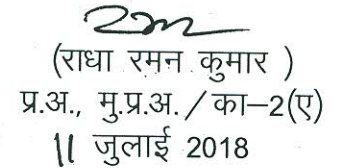 (राधा रमन कुमार )
प्र.अ., मु.प्र.अ. / का–2(ए)
11 जुलाई 2018